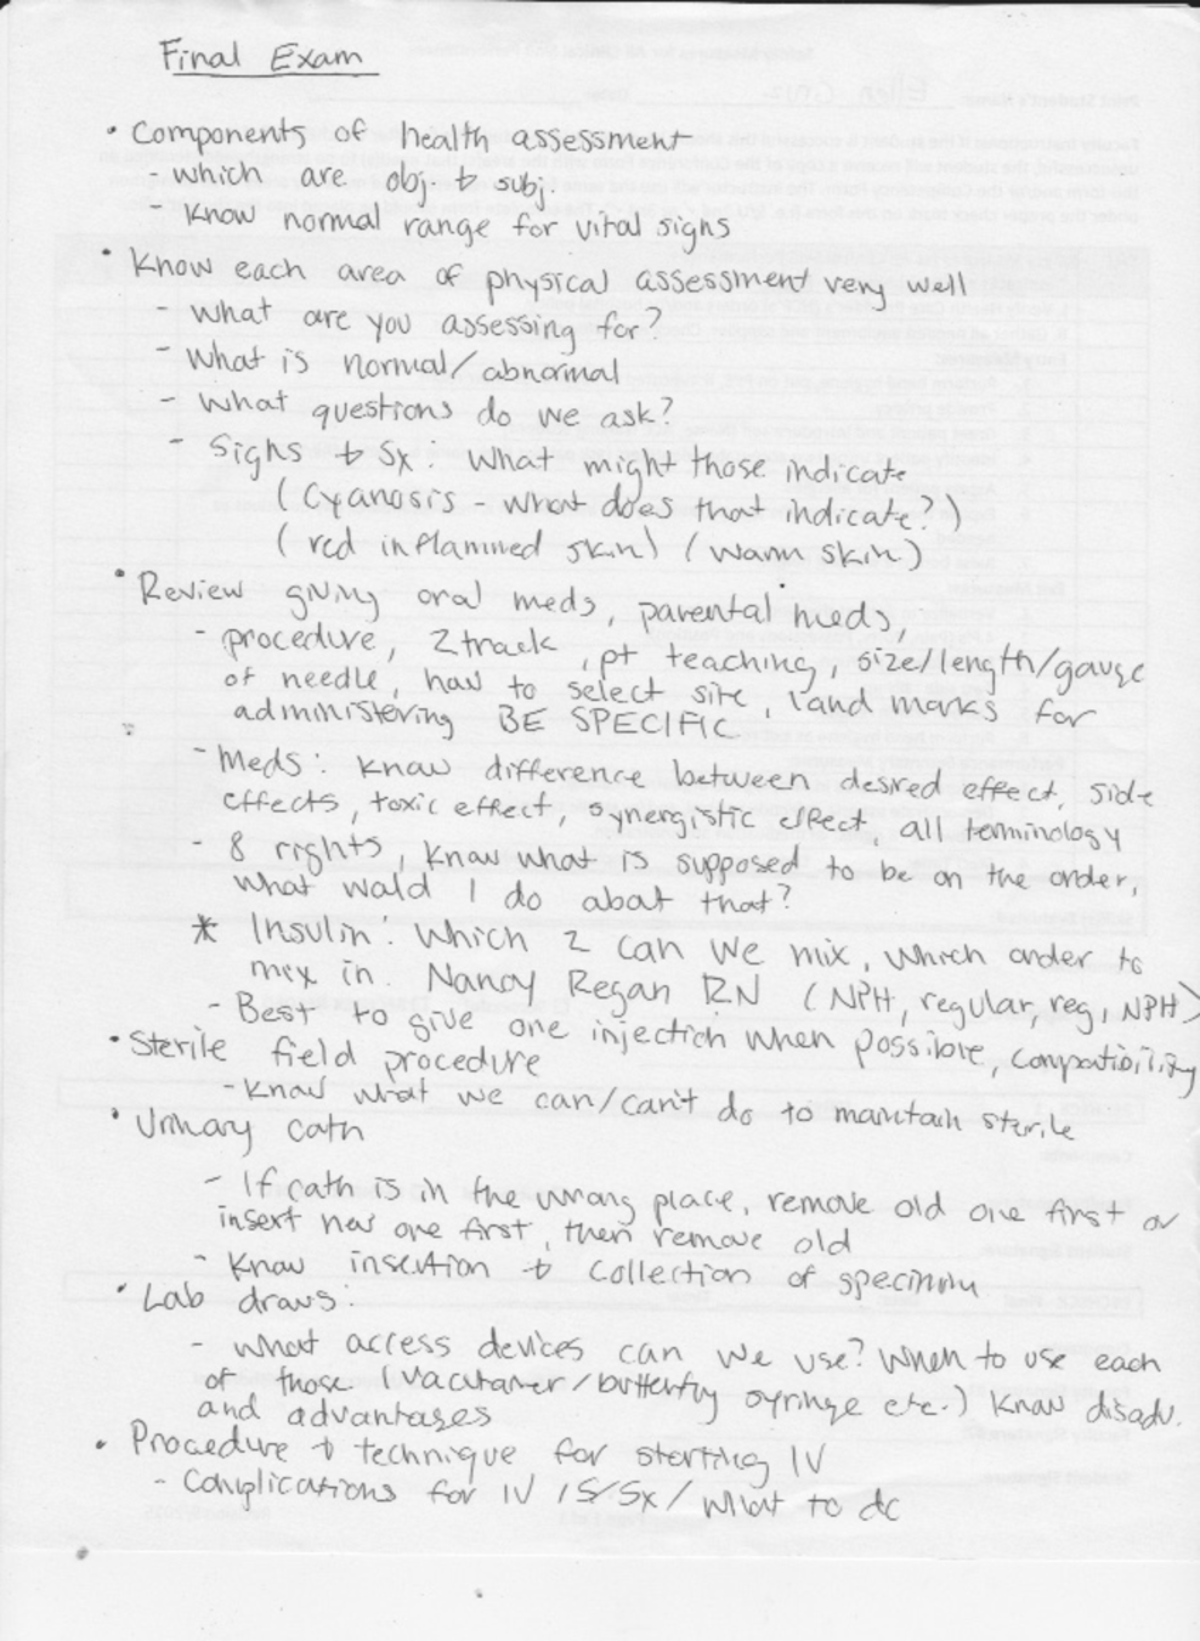 Final Exam
• Components of health assessment
- which are obj. & subj.
- Know normal range for vital signs
• Know each area of physical assessment very well
- What are you assessing for?
- What is normal/abnormal
- What questions do we ask?
- Signs & Sx: What might those indicate
(Cyanosis - what does that indicate?)
(red inflammed skin) (warm skin)
• Review giving oral meds, parental meds,
- procedure, Ztrack, pt teaching, size/length/gauge
of needle, how to select site, land marks for
administering BE SPECIFIC
- Meds: Know difference between desired effect, side
effects, toxic effect, synergistic effect, all terminology
- 8 rights, know what is supposed to be on the order,
what would I do about that?
* Insulin: Which 2 can we mix, which order to
mix in. Nancy Regan RN (NPH, regular, reg, NPH)
- Best to give one injection when possible, compatibility
• Sterile field procedure
- Know what we can/can't do to maintain sterile
• Urinary cath
- If cath is in the wrong place, remove old one first or
insert new one first, then remove old
- Know insertion & collection of specimin
• Lab draws:
- What access devices can we use? When to use each
of those (vacutaner/butterfly syringe etc.) Know disadv.
and advantages
• Procedure & technique for starting IV
- Complications for IV /S/Sx/ what to do